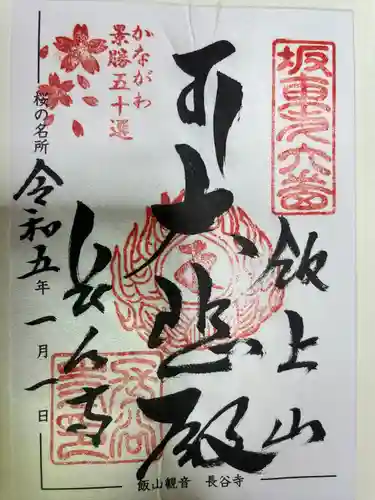 坂東第六番
飯上山
大悲殿
かながわ
景勝五十選
桜の名所
長谷寺
令和五年一月一日
飯山観音 長谷寺